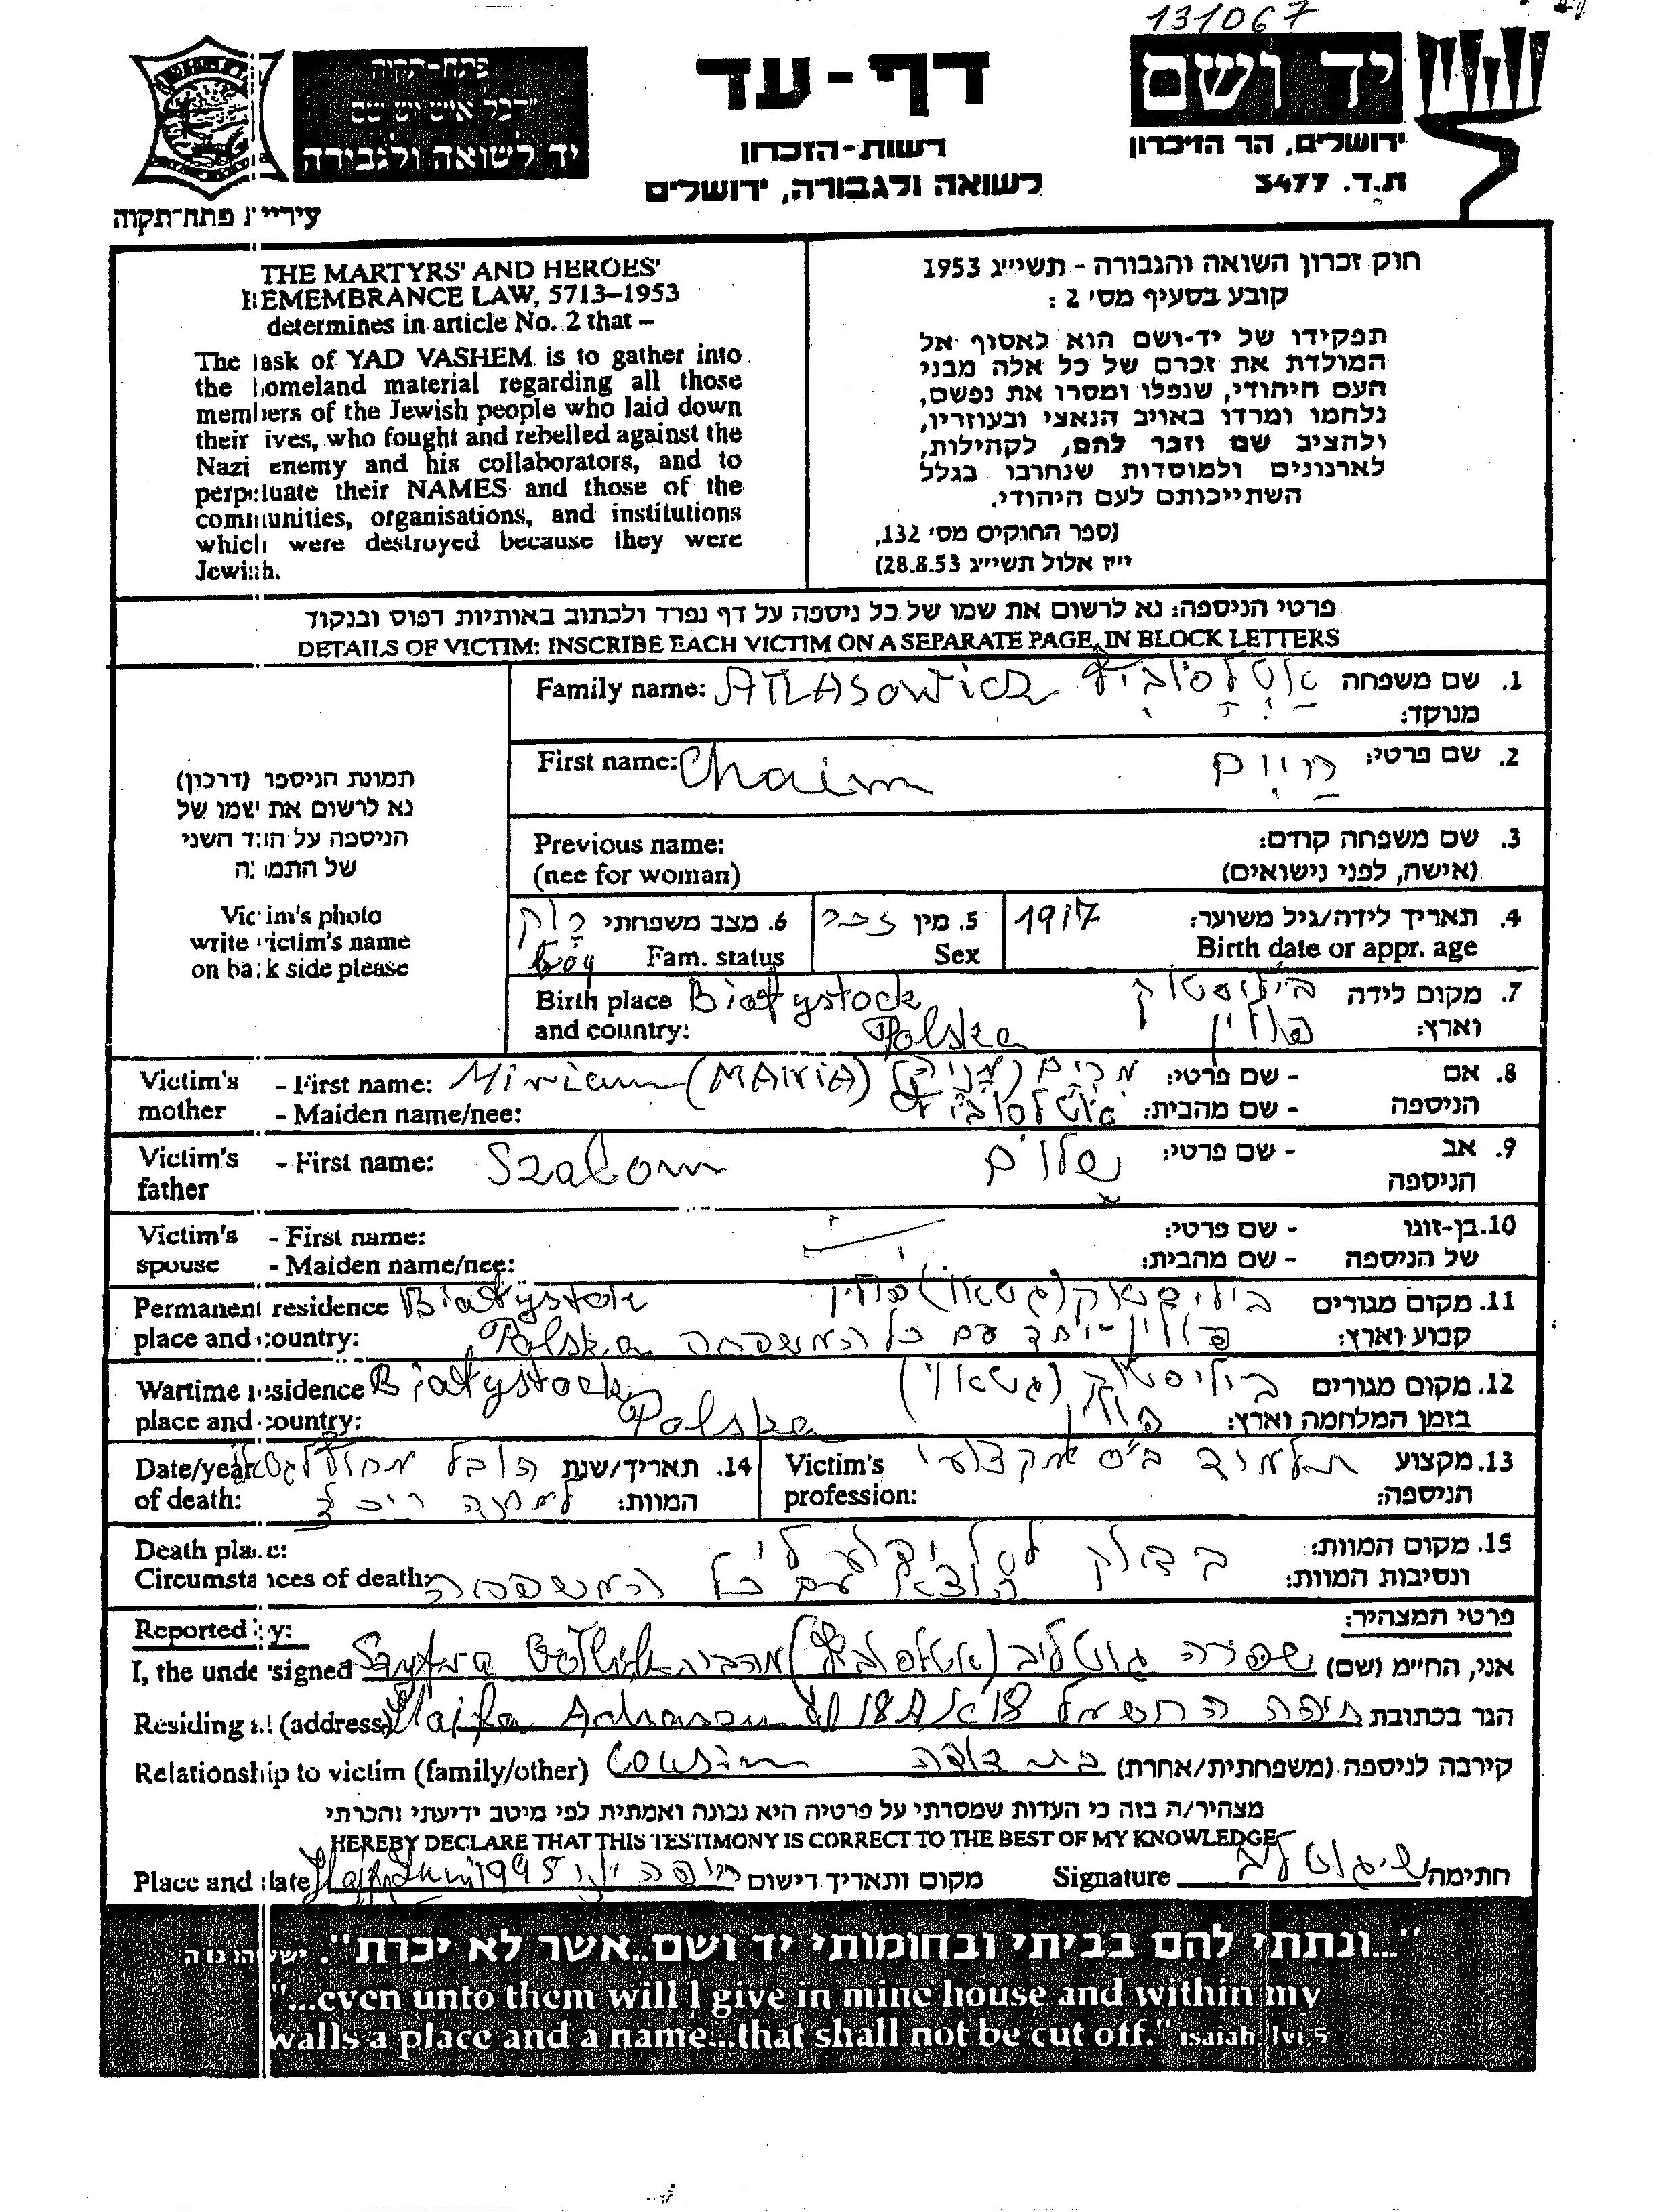 131067
פתח-תקוה
"לכל איש יש שם"
יד לשואה ולגבורה
עיריית פתח-תקוה
דף-עד
רשות-הזכרון
לשואה ולגבורה, ירושלים
יד ושם
ירושלים, הר הזיכרון
ת.ד. 3477
THE MARTYRS' AND HEROES'
REMEMBRANCE LAW, 5713–1953
determines in article No. 2 that –
The task of YAD VASHEM is to gather into
the homeland material regarding all those
members of the Jewish people who laid down
their lives, who fought and rebelled against the
Nazi enemy and his collaborators, and to
perpetuate their NAMES and those of the
communities, organisations, and institutions
which were destroyed because they were
Jewish.
חוק זכרון השואה והגבורה - תשי״ג 1953
קובע בסעיף מס׳ 2 :
תפקידו של יד-ושם הוא לאסוף אל
המולדת את זכרם של כל אלה מבני
העם היהודי, שנפלו ומסרו את נפשם,
נלחמו ומרדו באויב הנאצי ובעוזריו,
ולהציב שם וזכר להם, לקהילות,
לארגונים ולמוסדות שנחרבו בגלל
השתייכותם לעם היהודי.
(ספר החוקים מס׳ 132,
י״ז אלול תשי״ג 28.8.53)
פרטי הניספה: נא לרשום את שמו של כל ניספה על דף נפרד ולכתוב באותיות דפוס ובנקוד
DETAILS OF VICTIM: INSCRIBE EACH VICTIM ON A SEPARATE PAGE, IN BLOCK LETTERS
תמונת הניספה (דרכון)
נא לרשום את שמו של
הניספה על הצד השני
של התמונה
Victim's photo
write victim's name
on back side please
Family name: ATLASowicz אטלסוביץ 1. שם משפחה
מנוקד:
First name: Chaim חיים 2. שם פרטי:
Previous name: 3. שם משפחה קודם:
(nee for woman) (אישה, לפני נישואים)
4. תאריך לידה/גיל משוער: 1917 5. מין זכר 6. מצב משפחתי רווק
Birth date or appr. age Sex Fam. status boy
Birth place Białystock ביליסטוק 7. מקום לידה
and country: Polska פולין וארץ:
Victim's - First name: Miriam (MANIA) מרים (מניה) - שם פרטי: 8. אם
mother - Maiden name/nee: אטלסוביץ - שם מהבית: הניספה
Victim's - First name: Szalom שלום - שם פרטי: 9. אב
father הניספה
Victim's - First name: - שם פרטי: 10. בן-זוגו
spouse - Maiden name/nee: - שם מהבית: של הניספה
Permanent residence Białystok ביליסטוק (גטאו) פולין 11. מקום מגורים
place and country: Polska פולין - יחד עם כל המשפחה קבוע וארץ:
Wartime residence Białystock ביליסטוק (גטאו) 12. מקום מגורים
place and country: Polska פולין בזמן המלחמה וארץ:
Date/year הובל 14. תאריך/שנת
of death: למחנה המוות:
Victim's תלמיד בי״ס מקצועי 13. מקצוע
profession: הניספה:
Death place: 15. מקום המוות:
Circumstances of death: עם כל המשפחה ונסיבות המוות:
Reported by: פרטי המצהיר:
I, the undersigned Szyfra שפרה גוטליב (אטלסוביץ) מהבית אני, החי״מ (שם)
Residing at (address) Haifa 18 A חיפה 18 א הגר בכתובת
Relationship to victim (family/other) Cousin בת דודה קירבה לניספה (משפחתית/אחרת)
מצהיר/ה בזה כי העדות שמסרתי על פרטיה היא נכונה ואמתית לפי מיטב ידיעתי והכרתי
HEREBY DECLARE THAT THIS TESTIMONY IS CORRECT TO THE BEST OF MY KNOWLEDGE
Place and date Haifa 1995 חיפה מקום ותאריך רישום Signature ש. גוטליב חתימה
"...ונתתי להם בביתי ובחומותי יד ושם...אשר לא יכרת". ישעיהו נו ה
"...even unto them will I give in mine house and within my
walls a place and a name...that shall not be cut off." isaiah, lvi, 5